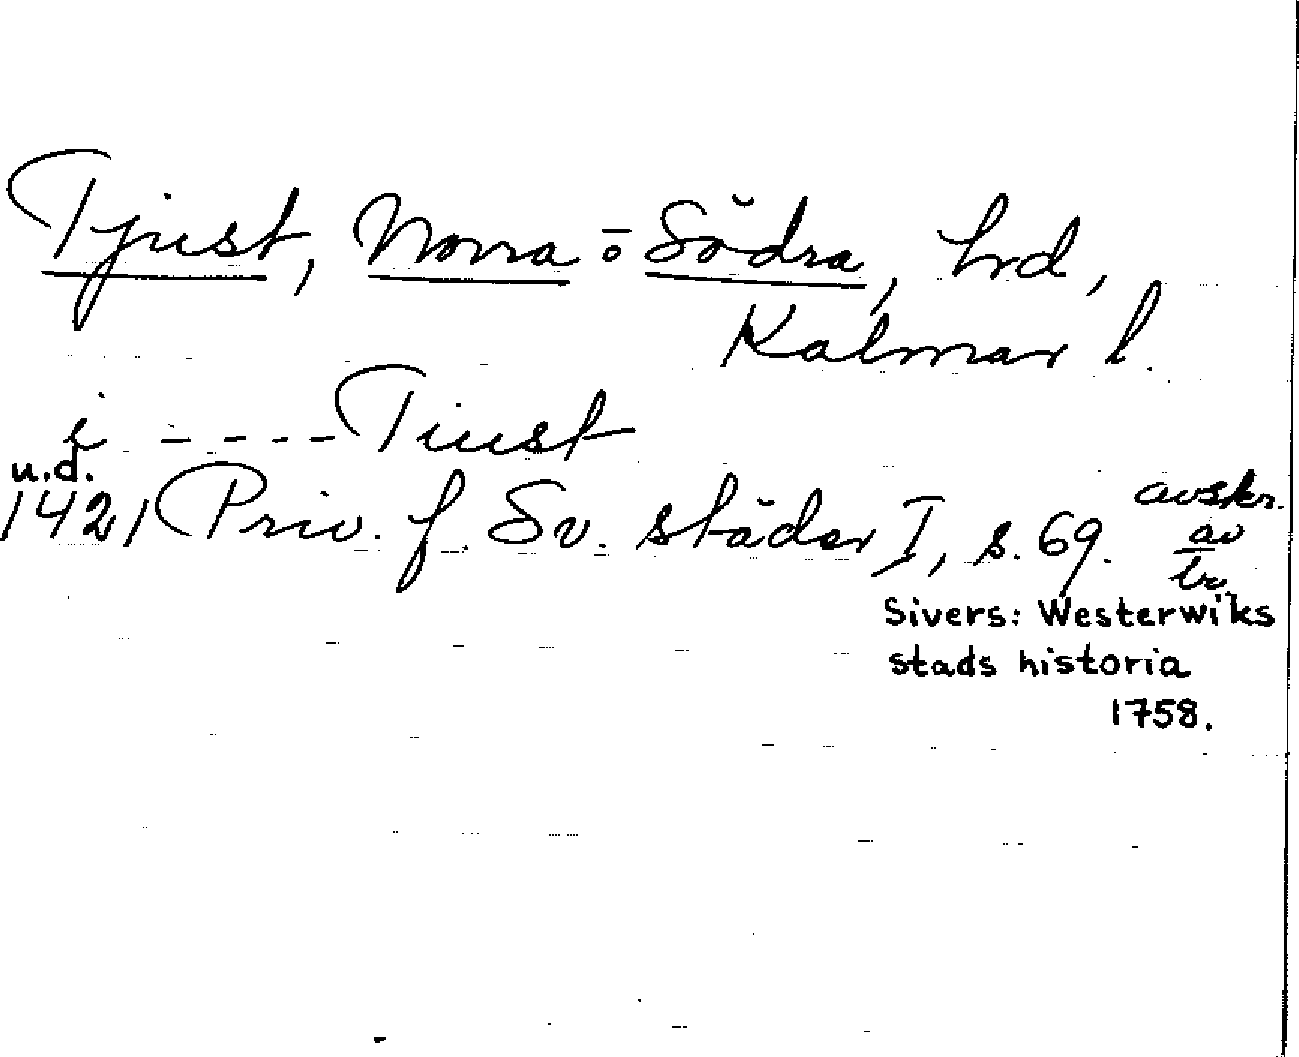 Tjust, Norra o Södra, hrd,
Kalmar l.
i ---- Tiust
u.d.
1421 Priv. f. Sv. städer I, s. 69. avskr.
av
tr.
Sivers: Westerwiks
stads historia
1758.